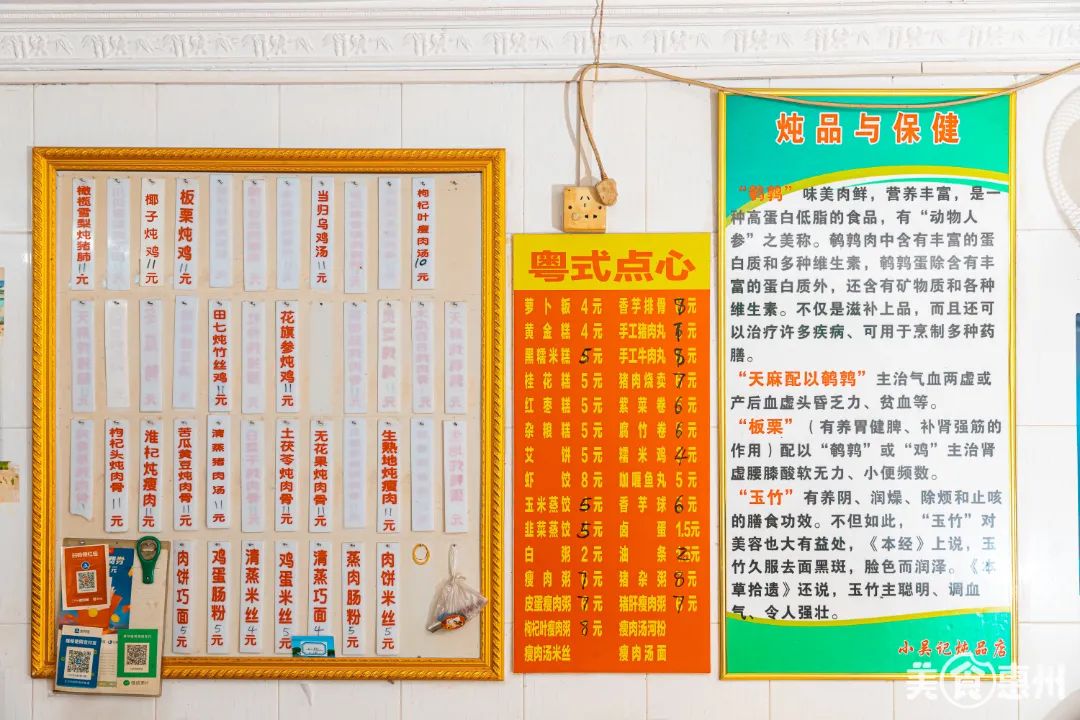 橄榄雪梨炖猪肺11元
椰子炖鸡11元
板栗炖鸡11元
当归乌鸡汤11元
枸杞叶瘦肉汤10元
田七炖竹丝鸡11元
花旗参炖鸡11元
枸杞头炖肉骨11元
淮杞炖瘦肉11元
苦瓜黄豆炖肉骨11元
清蒸猪肉汤11元
土茯苓炖肉骨11元
无花果炖肉骨11元
生熟地炖瘦肉11元
肉饼巧面5元
鸡蛋肠粉5元
清蒸米丝4元
鸡蛋米丝5元
清蒸巧面4元
蒸肉肠粉5元
肉饼米丝5元
粤式点心
萝卜板 4元 香芋排骨 8元
黄金糕 4元 手工猪肉丸 元
黑糯米糕 5元 手工牛肉丸 8元
桂花糕 5元 猪肉烧卖 7元
红枣糕 5元 紫菜卷 6元
杂粮糕 5元 腐竹卷 6元
艾饼 5元 糯米鸡 4元
虾饺 8元 咖喱鱼丸 5元
玉米蒸饺 5元 香芋球 6元
韭菜蒸饺 5元 卤蛋 1.5元
白粥 2元 油条 元
瘦肉粥 7元 猪杂粥 8元
皮蛋瘦肉粥 7元 猪肝瘦肉粥 7元
枸杞叶瘦肉粥 8元 瘦肉汤河粉
瘦肉汤米丝 瘦肉汤面
炖品与保健
“鹌鹑” 味美肉鲜，营养丰富，是一
种高蛋白低脂的食品，有“动物人
参”之美称。鹌鹑肉中含有丰富的蛋
白质和多种维生素，鹌鹑蛋除含有丰
富的蛋白质外，还含有矿物质和各种
维生素。不仅是滋补上品，而且还可
以治疗许多疾病、可用于烹制多种药
膳。
“天麻配以鹌鹑” 主治气血两虚或
产后血虚头昏乏力、贫血等。
“板栗”（有养胃健脾、补肾强筋的
作用）配以“鹌鹑”或“鸡”主治肾
虚腰膝酸软无力、小便频数。
“玉竹”有养阴、润燥、除烦和止咳
的膳食功效。不但如此，“玉竹”对
美容也大有益处，《本经》上说，玉
竹久服去面黑斑，脸色而润泽。《本
草拾遗》还说，玉竹主聪明、调血
气、令人强壮。
小吴记炖品店
美食惠州